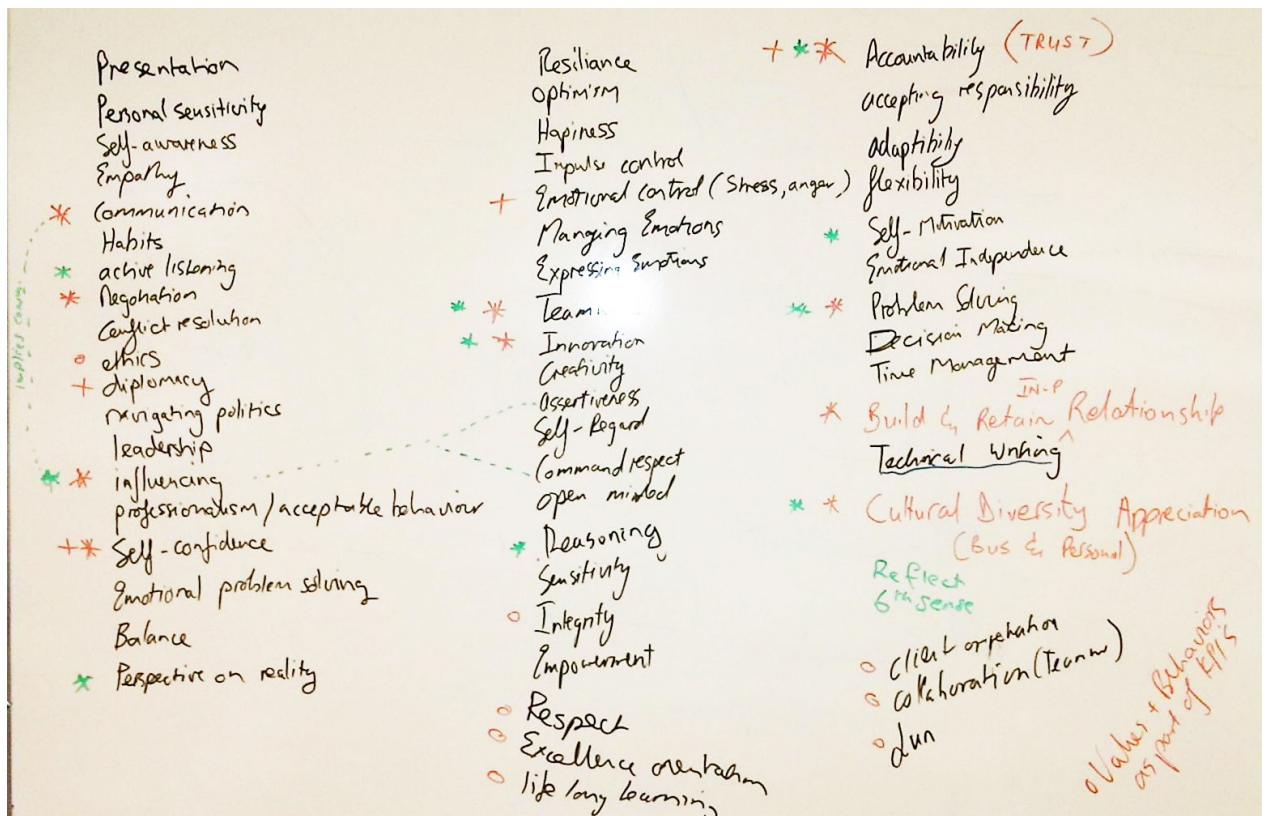 Presentation
Personal sensitivity
Self-awareness
Empathy
* Communication
Habits
* active listening
* Negotiation
Conflict resolution
o ethics
+ diplomacy
navigating politics
leadership
* * influencing
professionalism / acceptable behaviour
+ * Self-confidence
Emotional problem solving
Balance
* Perspective on reality
implies
Resiliance
optimism
Hapiness
Impulse control
+ Emotional control (Stress, anger,)
Managing Emotions
Expressing Emotions
* * Team
* * Innovation
Creativity
assertiveness
Self-Regard
Command respect
open minded
* Reasoning
Sensitivity
o Integrity
Empowerment
o Respect
o Excellence orientation
o life long learning
+ * * Accountability (TRUST)
accepting responsibility
adaptibility
flexibility
* Self-Motivation
Emotional Independence
* * Problem Solving
Decision Making
Time Management
IN-P
* Build & Retain ^ Relationship
Technical Writing
* * Cultural Diversity Appreciation
(Bus & Personal)
Reflect
6th sense
o client orientation
o collaboration (Team)
o
o Values + Behaviors
as part of KPIs